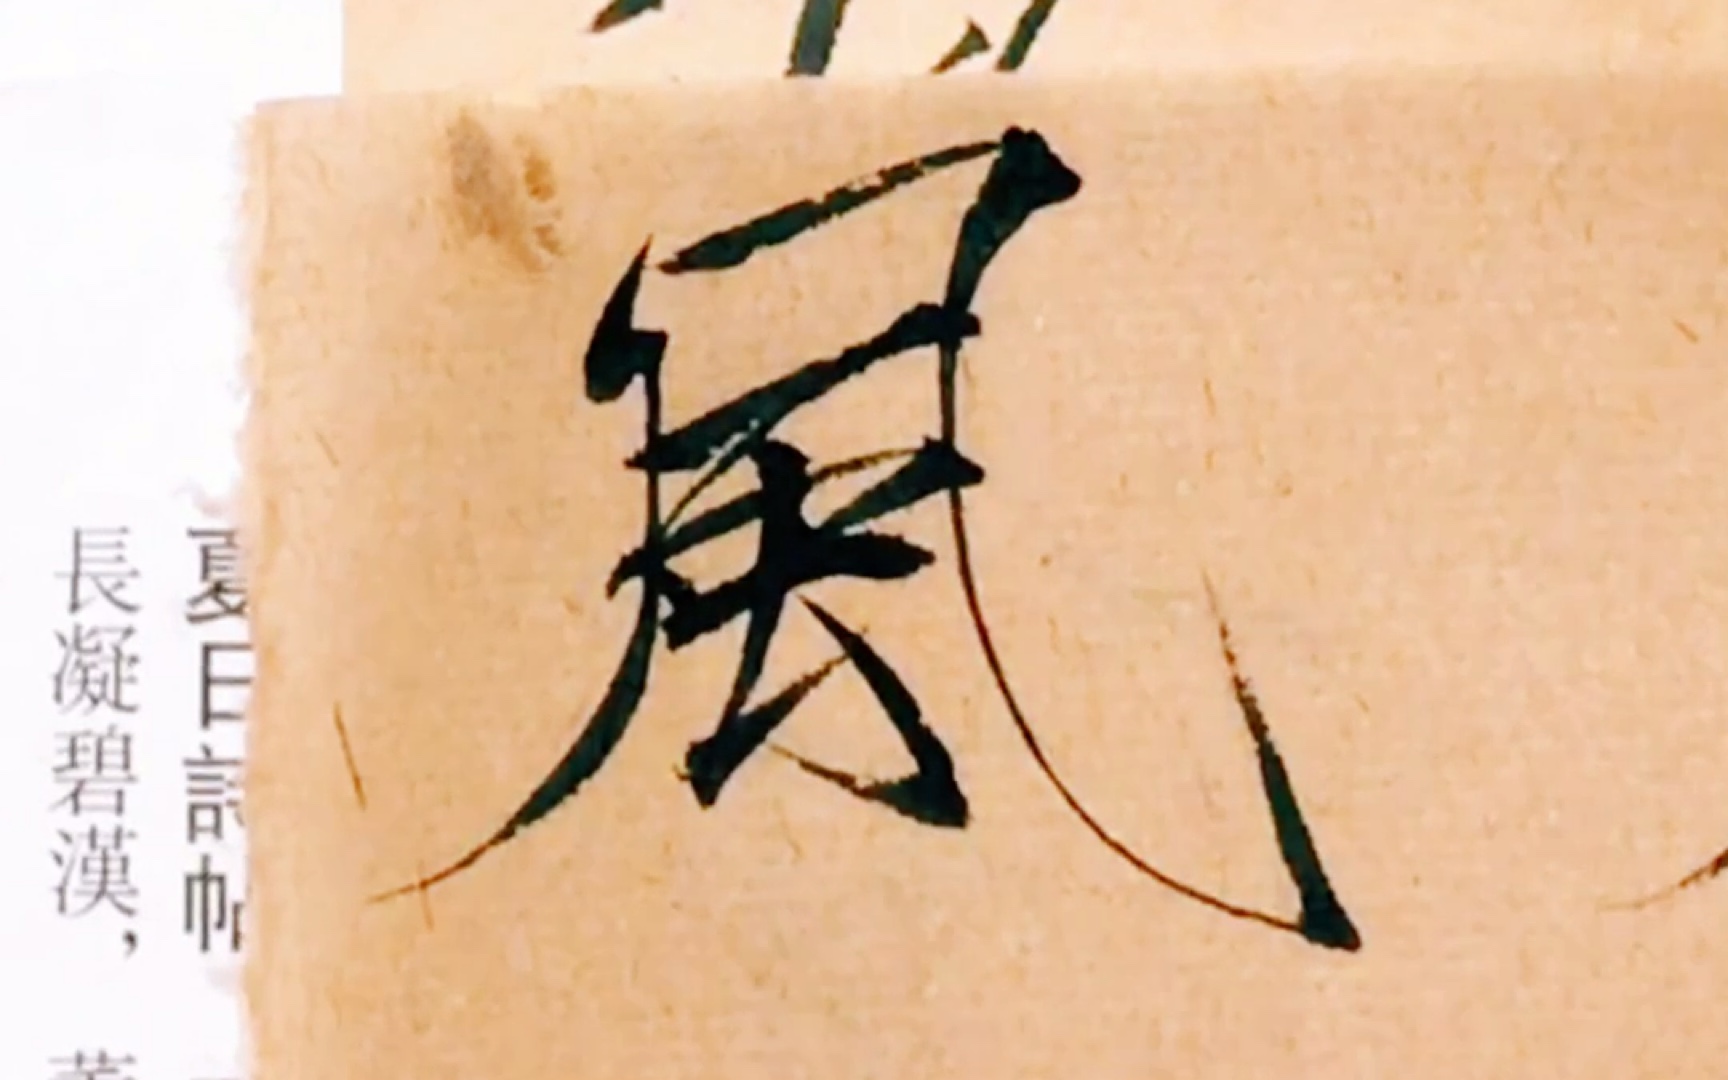 風
夏日詩帖
長凝碧漢，